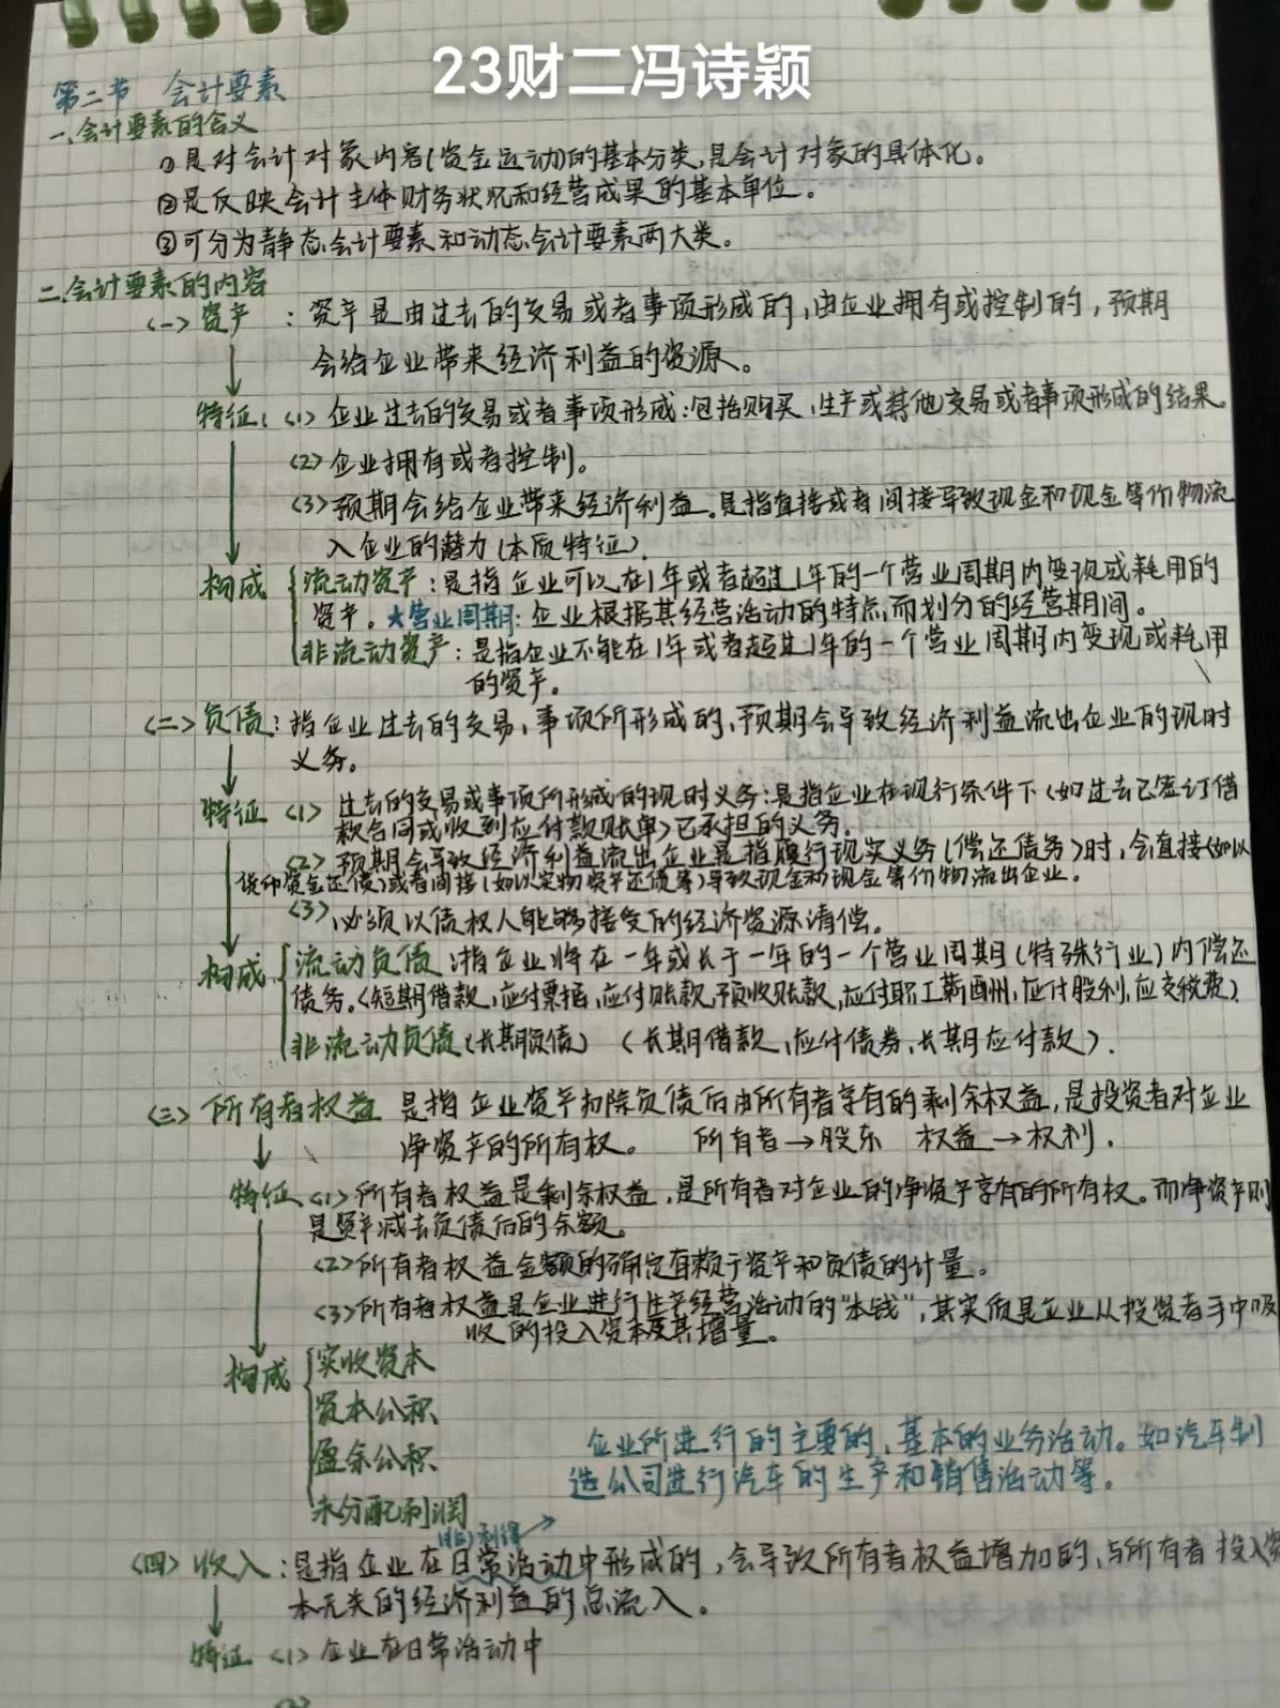 23财二冯诗颖
第二节 会计要素
一、会计要素的含义
①是对会计对象内容(资金运动)的基本分类,是会计对象的具体化。
②是反映会计主体财务状况和经营成果的基本单位。
③可分为静态会计要素和动态会计要素两大类。
二、会计要素的内容
(一)资产:资产是由过去的交易或者事项形成的,由企业拥有或控制的,预期
会给企业带来经济利益的资源。
特征:(1)企业过去的交易或者事项形成:包括购买、生产或其他交易或者事项形成的结果。
(2)企业拥有或者控制。
(3)预期会给企业带来经济利益。是指直接或者间接导致现金和现金等价物流
入企业的潜力(本质特征)。
构成 流动资产:是指企业可以在1年或者超过1年的一个营业周期内变现或耗用的
资产。★营业周期:企业根据其经营活动的特点而划分的经营期间。
非流动资产:是指企业不能在1年或者超过1年的一个营业周期内变现或耗用
的资产。
(二)负债:指企业过去的交易,事项所形成的,预期会导致经济利益流出企业的现时
义务。
特征 (1)过去的交易或事项所形成的现时义务:是指企业在现行条件下(如过去已签订借
款合同或收到应付款账单)已承担的义务。
(2)预期会导致经济利益流出企业是指履行现实义务(偿还债务)时,会直接(如以
货币资金还债)或者间接(如以实物资产还债等)导致现金和现金等价物流出企业。
(3)必须以债权人能够接受的经济资源清偿。
构成 流动负债:指企业将在一年或长于一年的一个营业周期(特殊行业)内偿还
债务。(短期借款,应付票据,应付账款,预收账款,应付职工薪酬,应付股利,应交税费)
非流动负债(长期负债) (长期借款,应付债券,长期应付款).
(三)所有者权益 是指企业资产扣除负债后由所有者享有的剩余权益,是投资者对企业
净资产的所有权。 所有者→股东 权益→权利.
特征(1)所有者权益是剩余权益,是所有者对企业的净资产享有的所有权。而净资产则
是资产减去负债后的余额。
(2)所有者权益金额的确定有赖于资产和负债的计量。
(3)所有者权益是企业进行生产经营活动的“本钱”,其实质是企业从投资者手中吸
收的投入资本及其增量。
构成 实收资本
资本公积
盈余公积
未分配利润
企业所进行的主要的、基本的业务活动。如汽车制
造公司进行汽车的生产和销售活动等。
(四)收入:是指企业在日常活动中形成的,会导致所有者权益增加的,与所有者投入资
本无关的经济利益的总流入。
特征 (1)企业在日常活动中